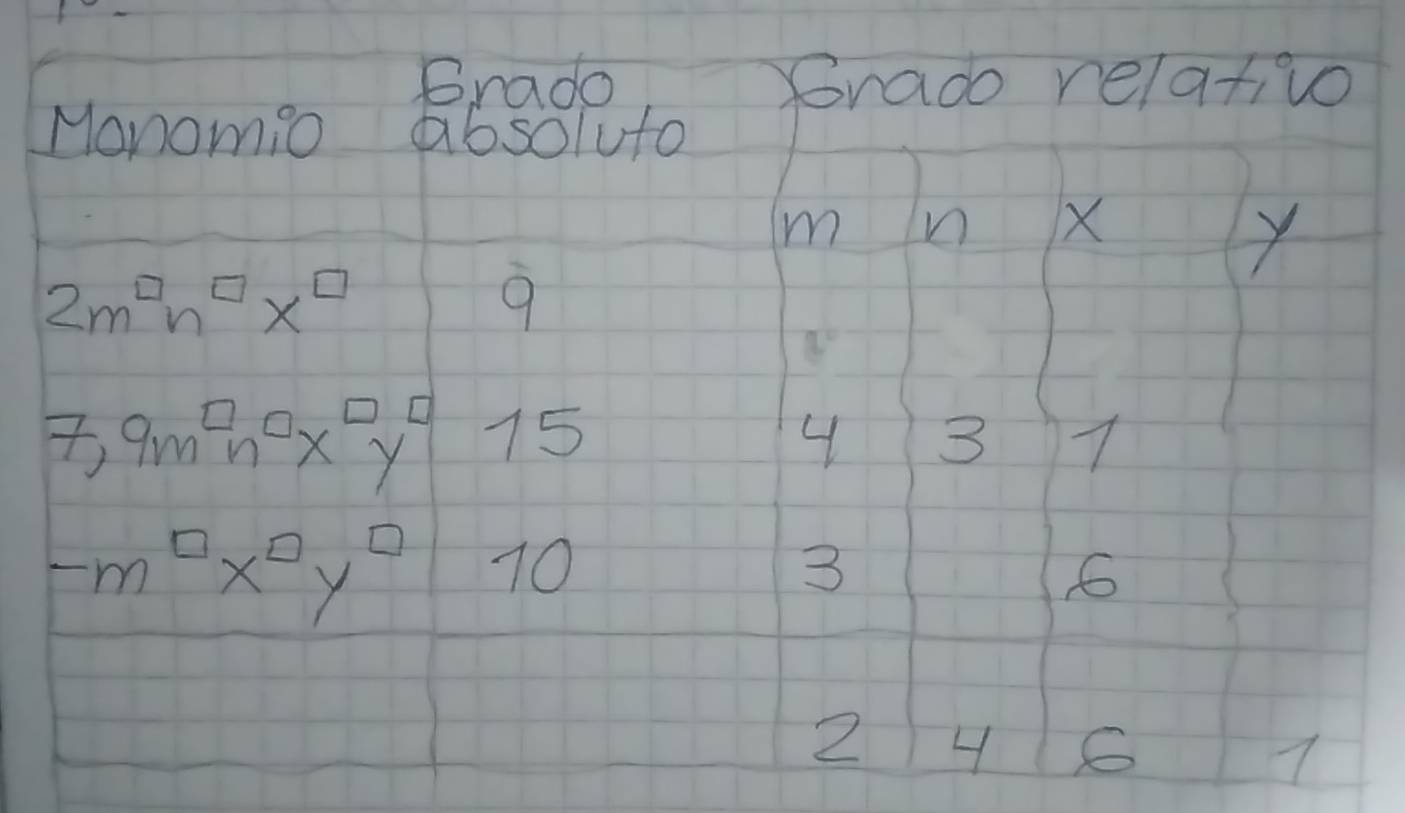 Monomio Grado absoluto Grado relativo
m n x y
2m□n□x□ 9
7,9m□n□x□y□ 15 4 3 1
-m□x□y□ 10 3 6
2 4 6 1